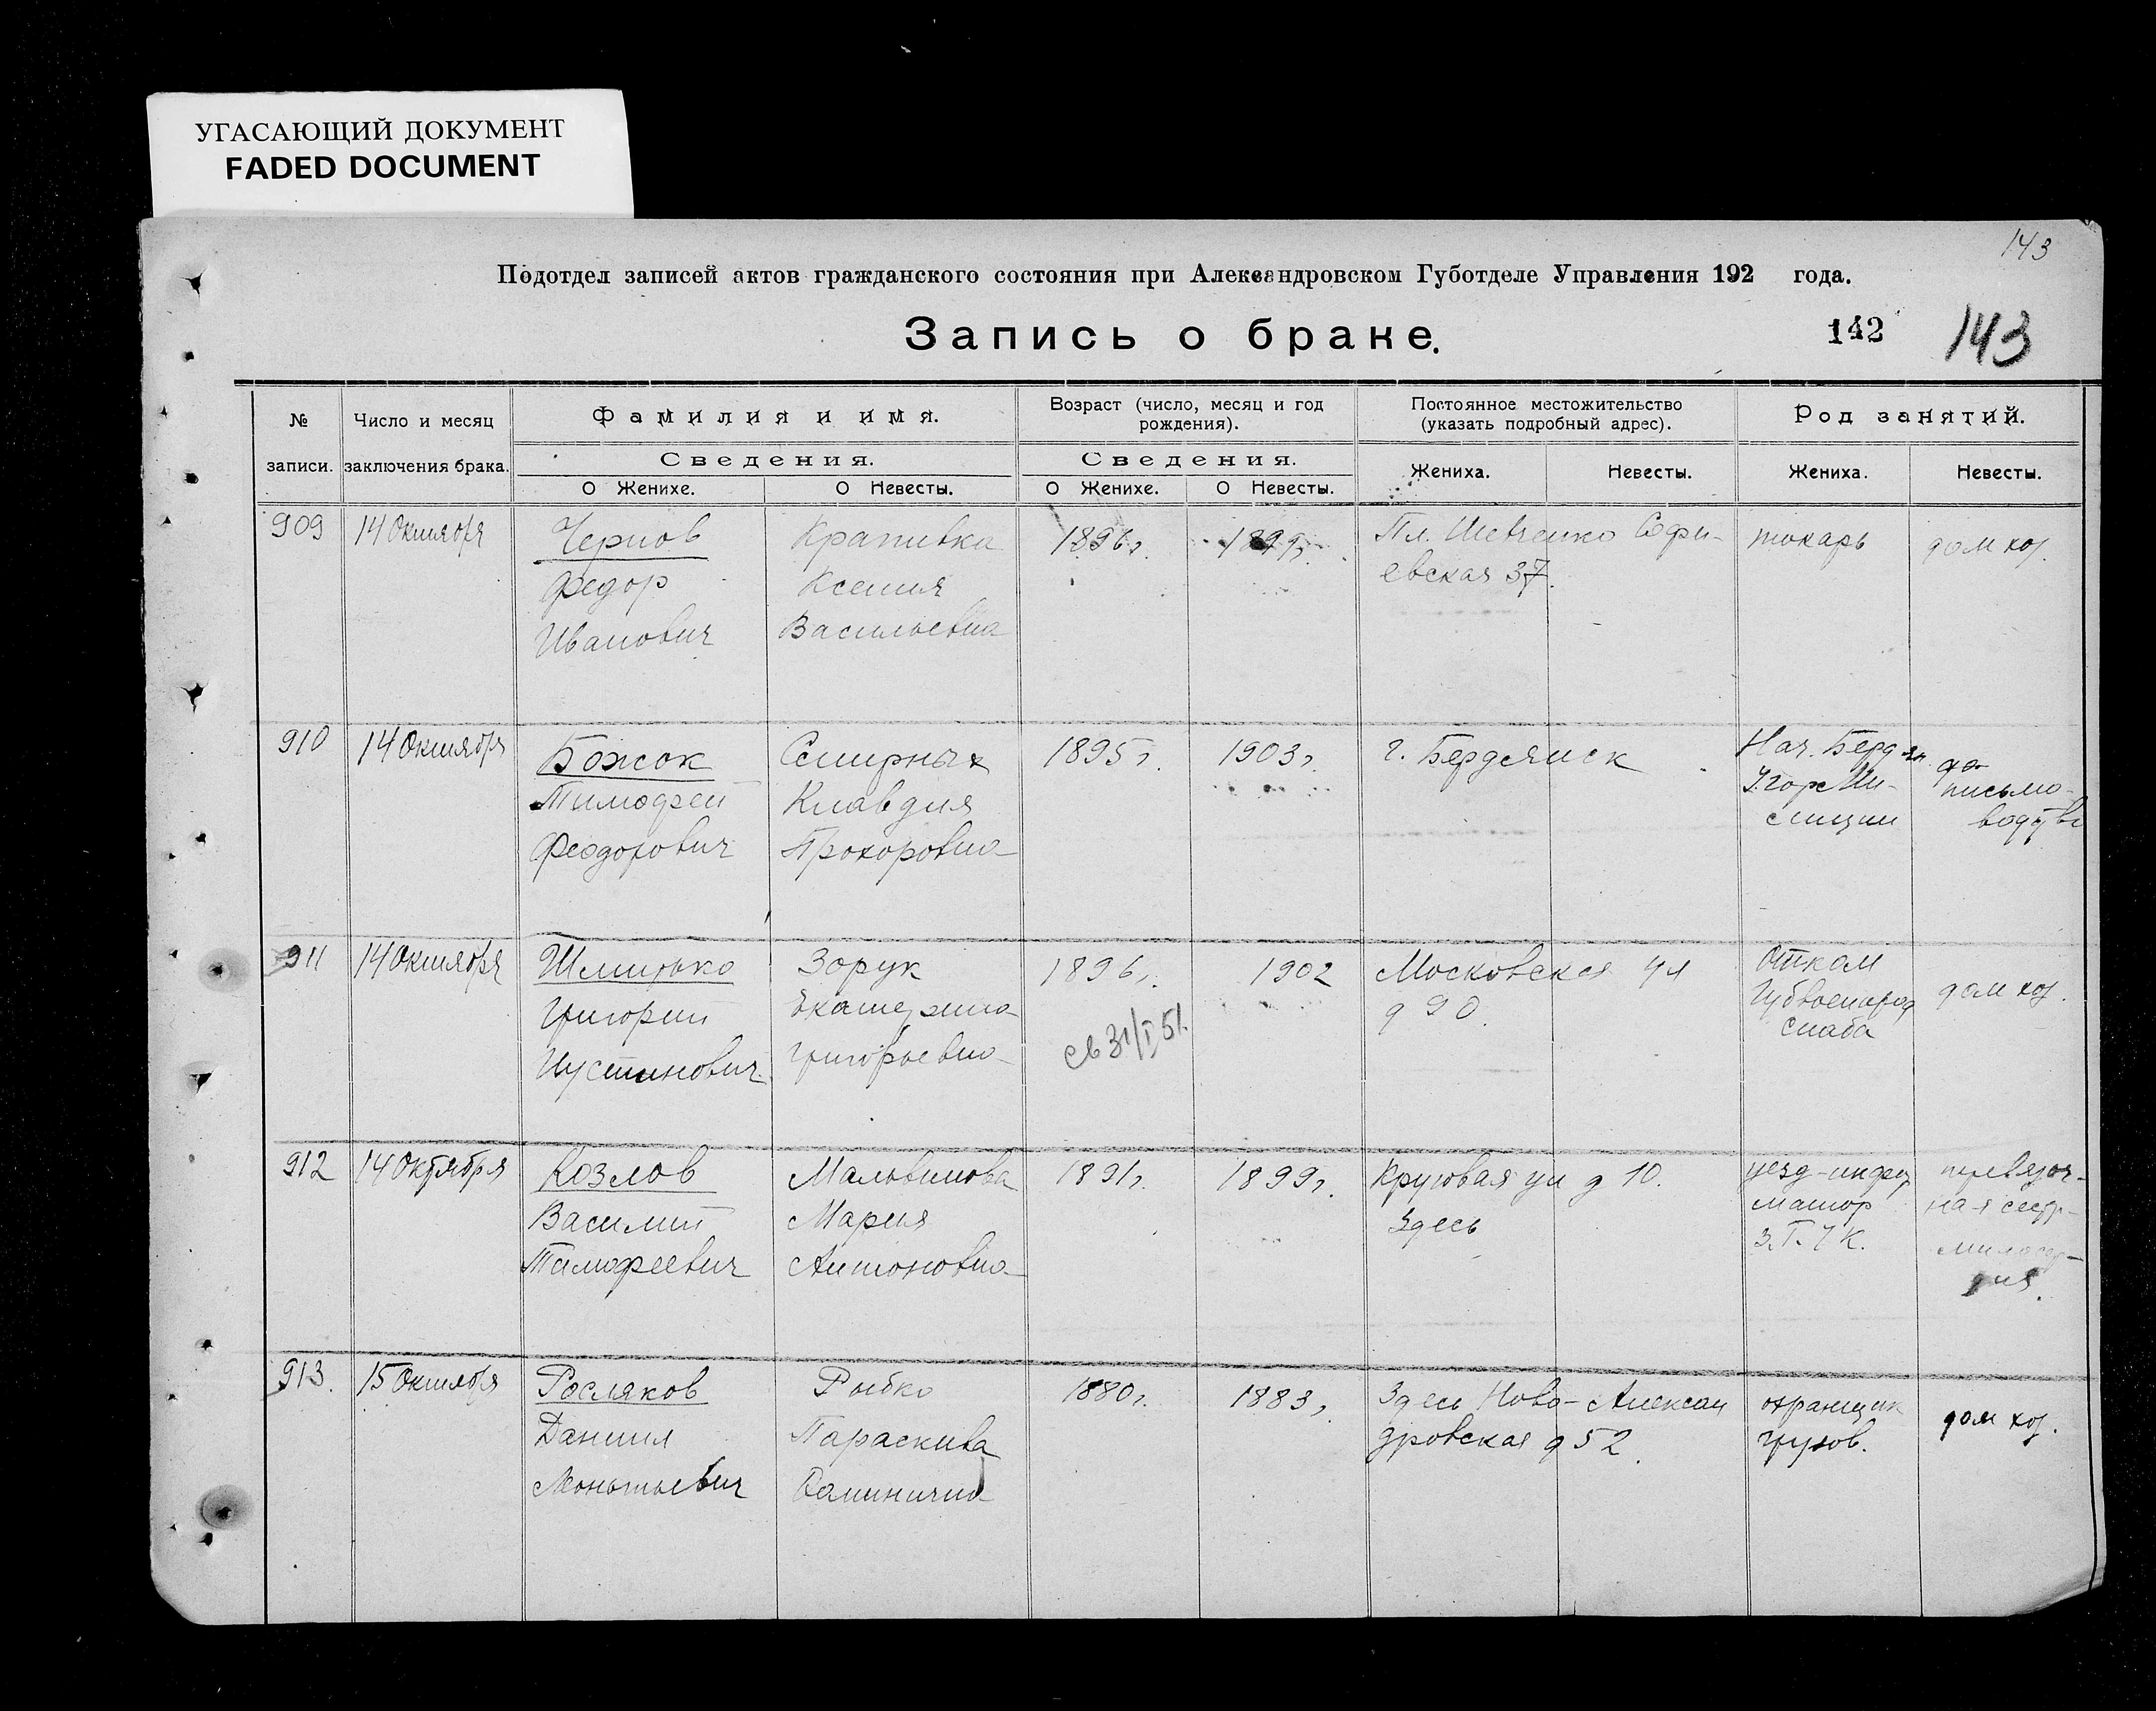 УГАСАЮЩИЙ ДОКУМЕНТ
FADED DOCUMENT
143
Подотдел записей актов гражданского состояния при Александровском Губотделе Управления 192 года.
Запись о браке.
142
143
№ записи.
Число и месяц заключения брака.
Фамилия и имя.
Сведения.
О Женихе.
О Невесты.
Возраст (число, месяц и год рождения).
Сведения.
О Женихе.
О Невесты.
Постоянное местожительство (указать подробный адрес).
Жениха.
Невесты.
Род занятий.
Жениха.
Невесты.
909
14 Октября
Чернов
Федор
Иванович
Крапивка
Ксения
Васильевна
1896г.
Пл. Шевченко Софи-
евская 37.
токарь
дом хоз.
910
14 Октября
Божок
Тимофей
Феодорович
Смирных
Клавдия
Прохоровна
1895г.
1903г.
г. Бердянск
Нач. Бердян
У.гор Ми-
лиции
письмо-
911
14 Октября
Григорий
Иустинович
Зорук
Екатерина
Григорьевна
1896г.
св 31/I 51.
1902
Московская ул
д 90.
снаба
дом хоз.
912
14 Октября
Козлов
Василий
Тимофеевич
Мальвинова
Мария
Антоновна
1891г.
1899г.
Круговая ул д 10.
Здесь
уезд-инфор
матор
перевязоч-
ная сестр-
милосер-
дия.
913.
15 Октября
Росляков
Даниил
Леонтьевич
Рыбко
Параскива
1880г.
1883г.
Здесь Ново-Алексан
дровская д 52.
грузов.
дом хоз.